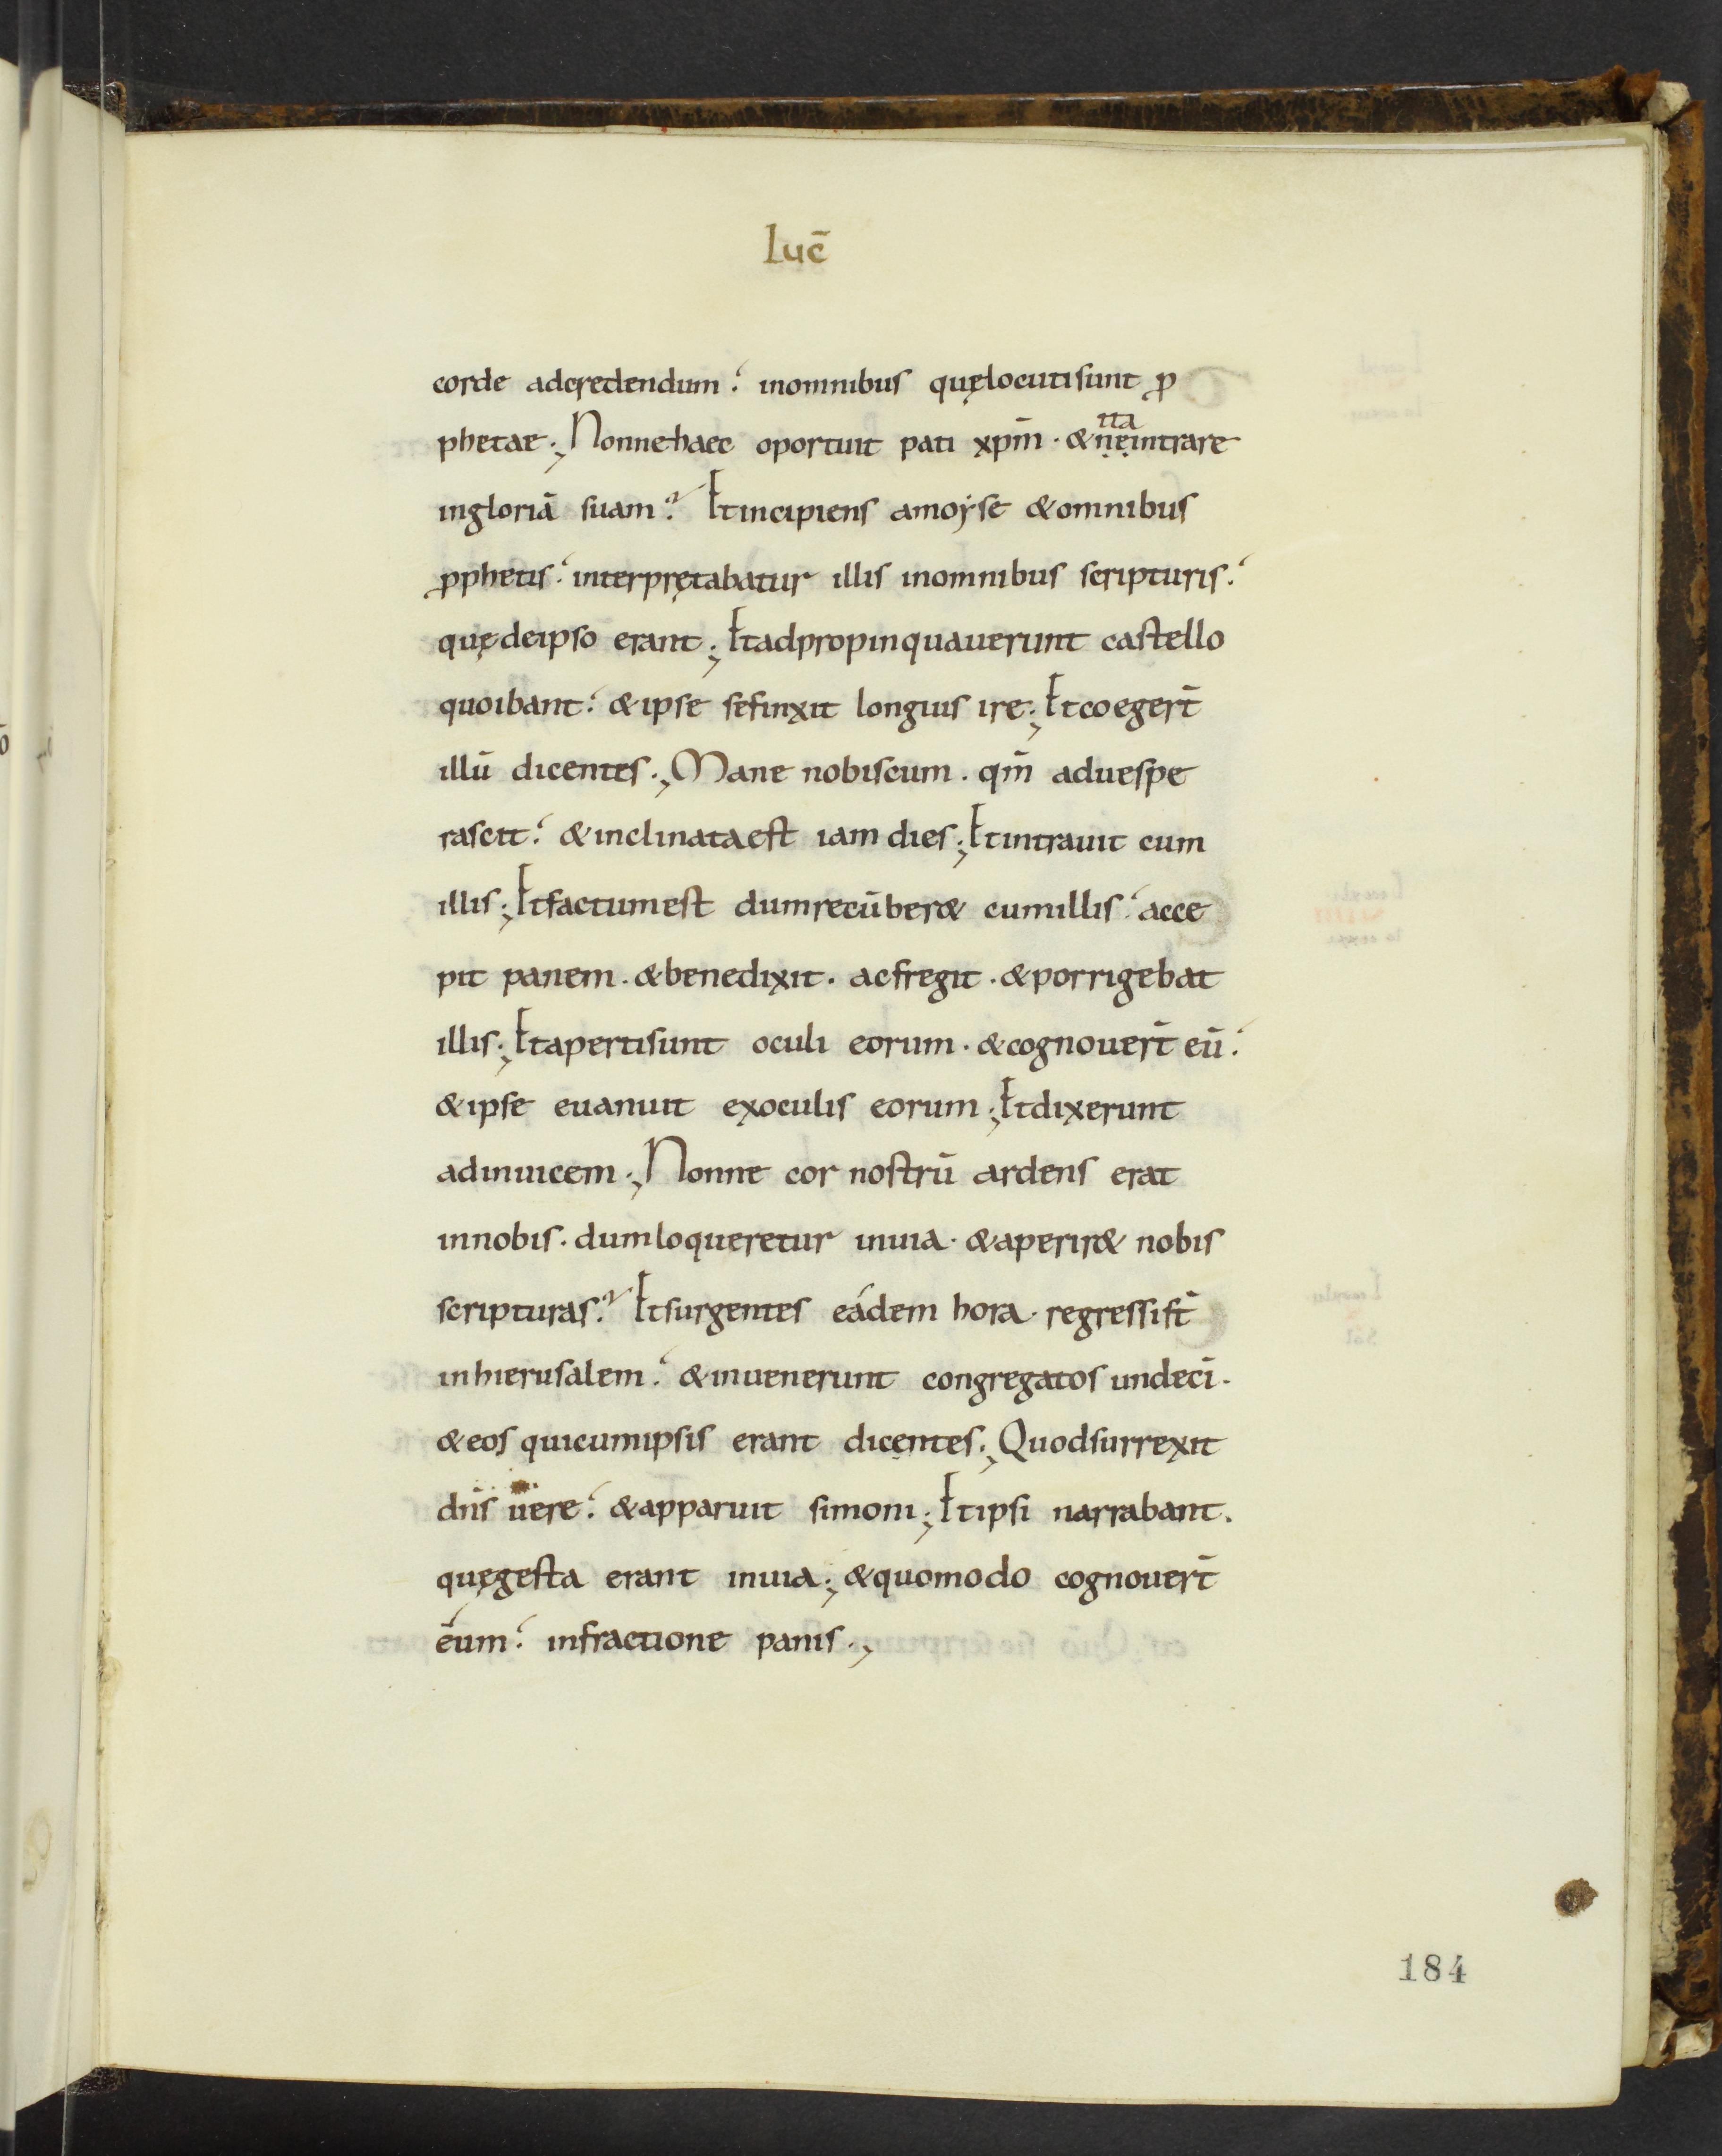 Luc̄
corde adcredendum. inomnibus quęlocutisunt ꝓ
phetae; Nonnehaec oportuit pati xp̄m · & nẹẹintrare
ita
ingloriā suam? Etincipiens amoẏse &omnibus
ꝓphetis. interprętabatur illis inomnibus scripturis.
quędeipso erant; Etadpropinquauerunt castello
quoibant. &ipse sefinxit longius ire; Etcoegert̄
illū dicentes; Mane nobiscum · qm̄ aduespe
rascit. &inclinataest iam dies; Etintrauit cum
illis; Etfactumest dumrecūber& cumillis. acce
pit panem · &benedixit · acfregit · &porrigebat
illis; Etapertisunt oculi eorum · &cognouert̄ eū.
&ipse euanuit exoculis eorum; Etdixerunt
adinuicem; Nonne cor nostrū ardens erat
innobis · dumloqueretur inuia · &aperir& nobis
scripturas? Etsurgentes eádem hora · regressisт̄
inhierusalem. &inuenerunt congregatos undecī ·
&eos quicumipsis erant dicentes; Quodsurrexit
dn̄s uere. &apparuit simoni; Etipsi narrabant.
quęgesta erant inuia; &quomodo cognouert̄
eum. infractione panis;
184